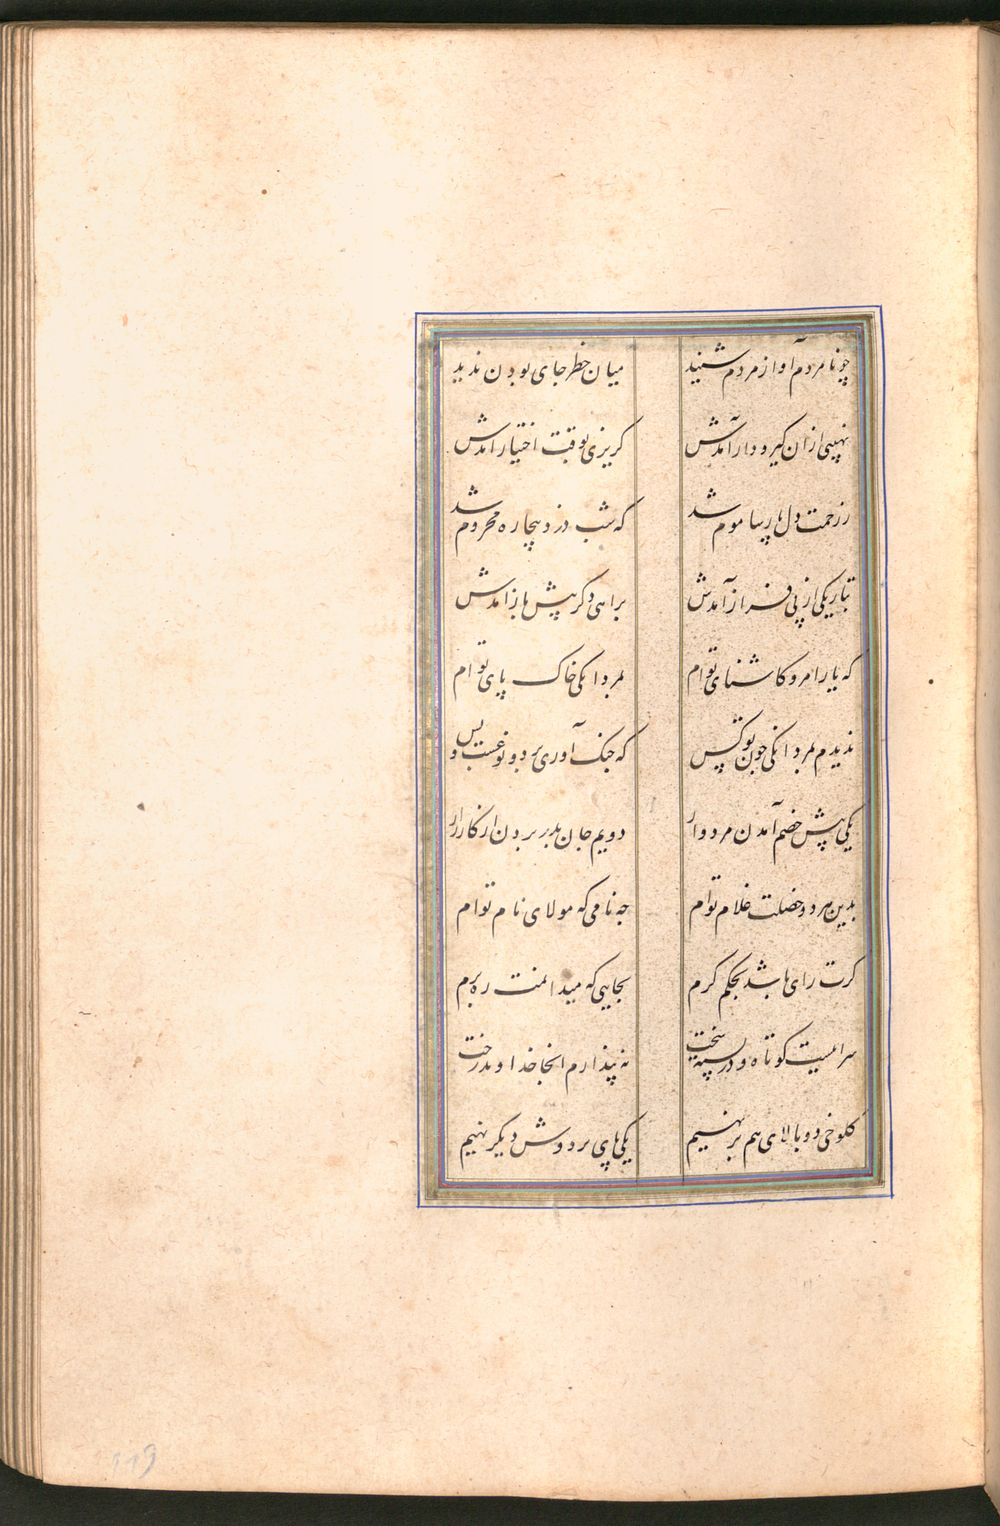 چو نامردم آواز مردم شنید میان خطر جای بودن ندید
نهیبی ازان کیر و دار آمدش کریزی بوقت اختیار آمدش
ز رحمت دل پارسا موم شد که شب دزد بیچاره محروم شد
بتاریکی از پی فراز آمدش براهی دکر پیش باز آمدش
که یارا مرو کاشنای توام بمردانکی خاک پای توام
ندیدم بمردانکی چون تو کس که جنک آوری بر دو نوعست و بس
یکی پیش خصم آمدن مردوار دویم جان بدر بردن از کارزار
بدین هر دو خصلت غلام توام چه نامی که مولای نام توام
کرت رای باشد بحکم کرم بجایی که میدانمت ره برم
سراییست کوتاه و در بسته سخت نه پندارم انجا خداوند رخت
کلوخی دو بالای هم بر نهیم یکی پای بر دوش دیکر نهیم
119